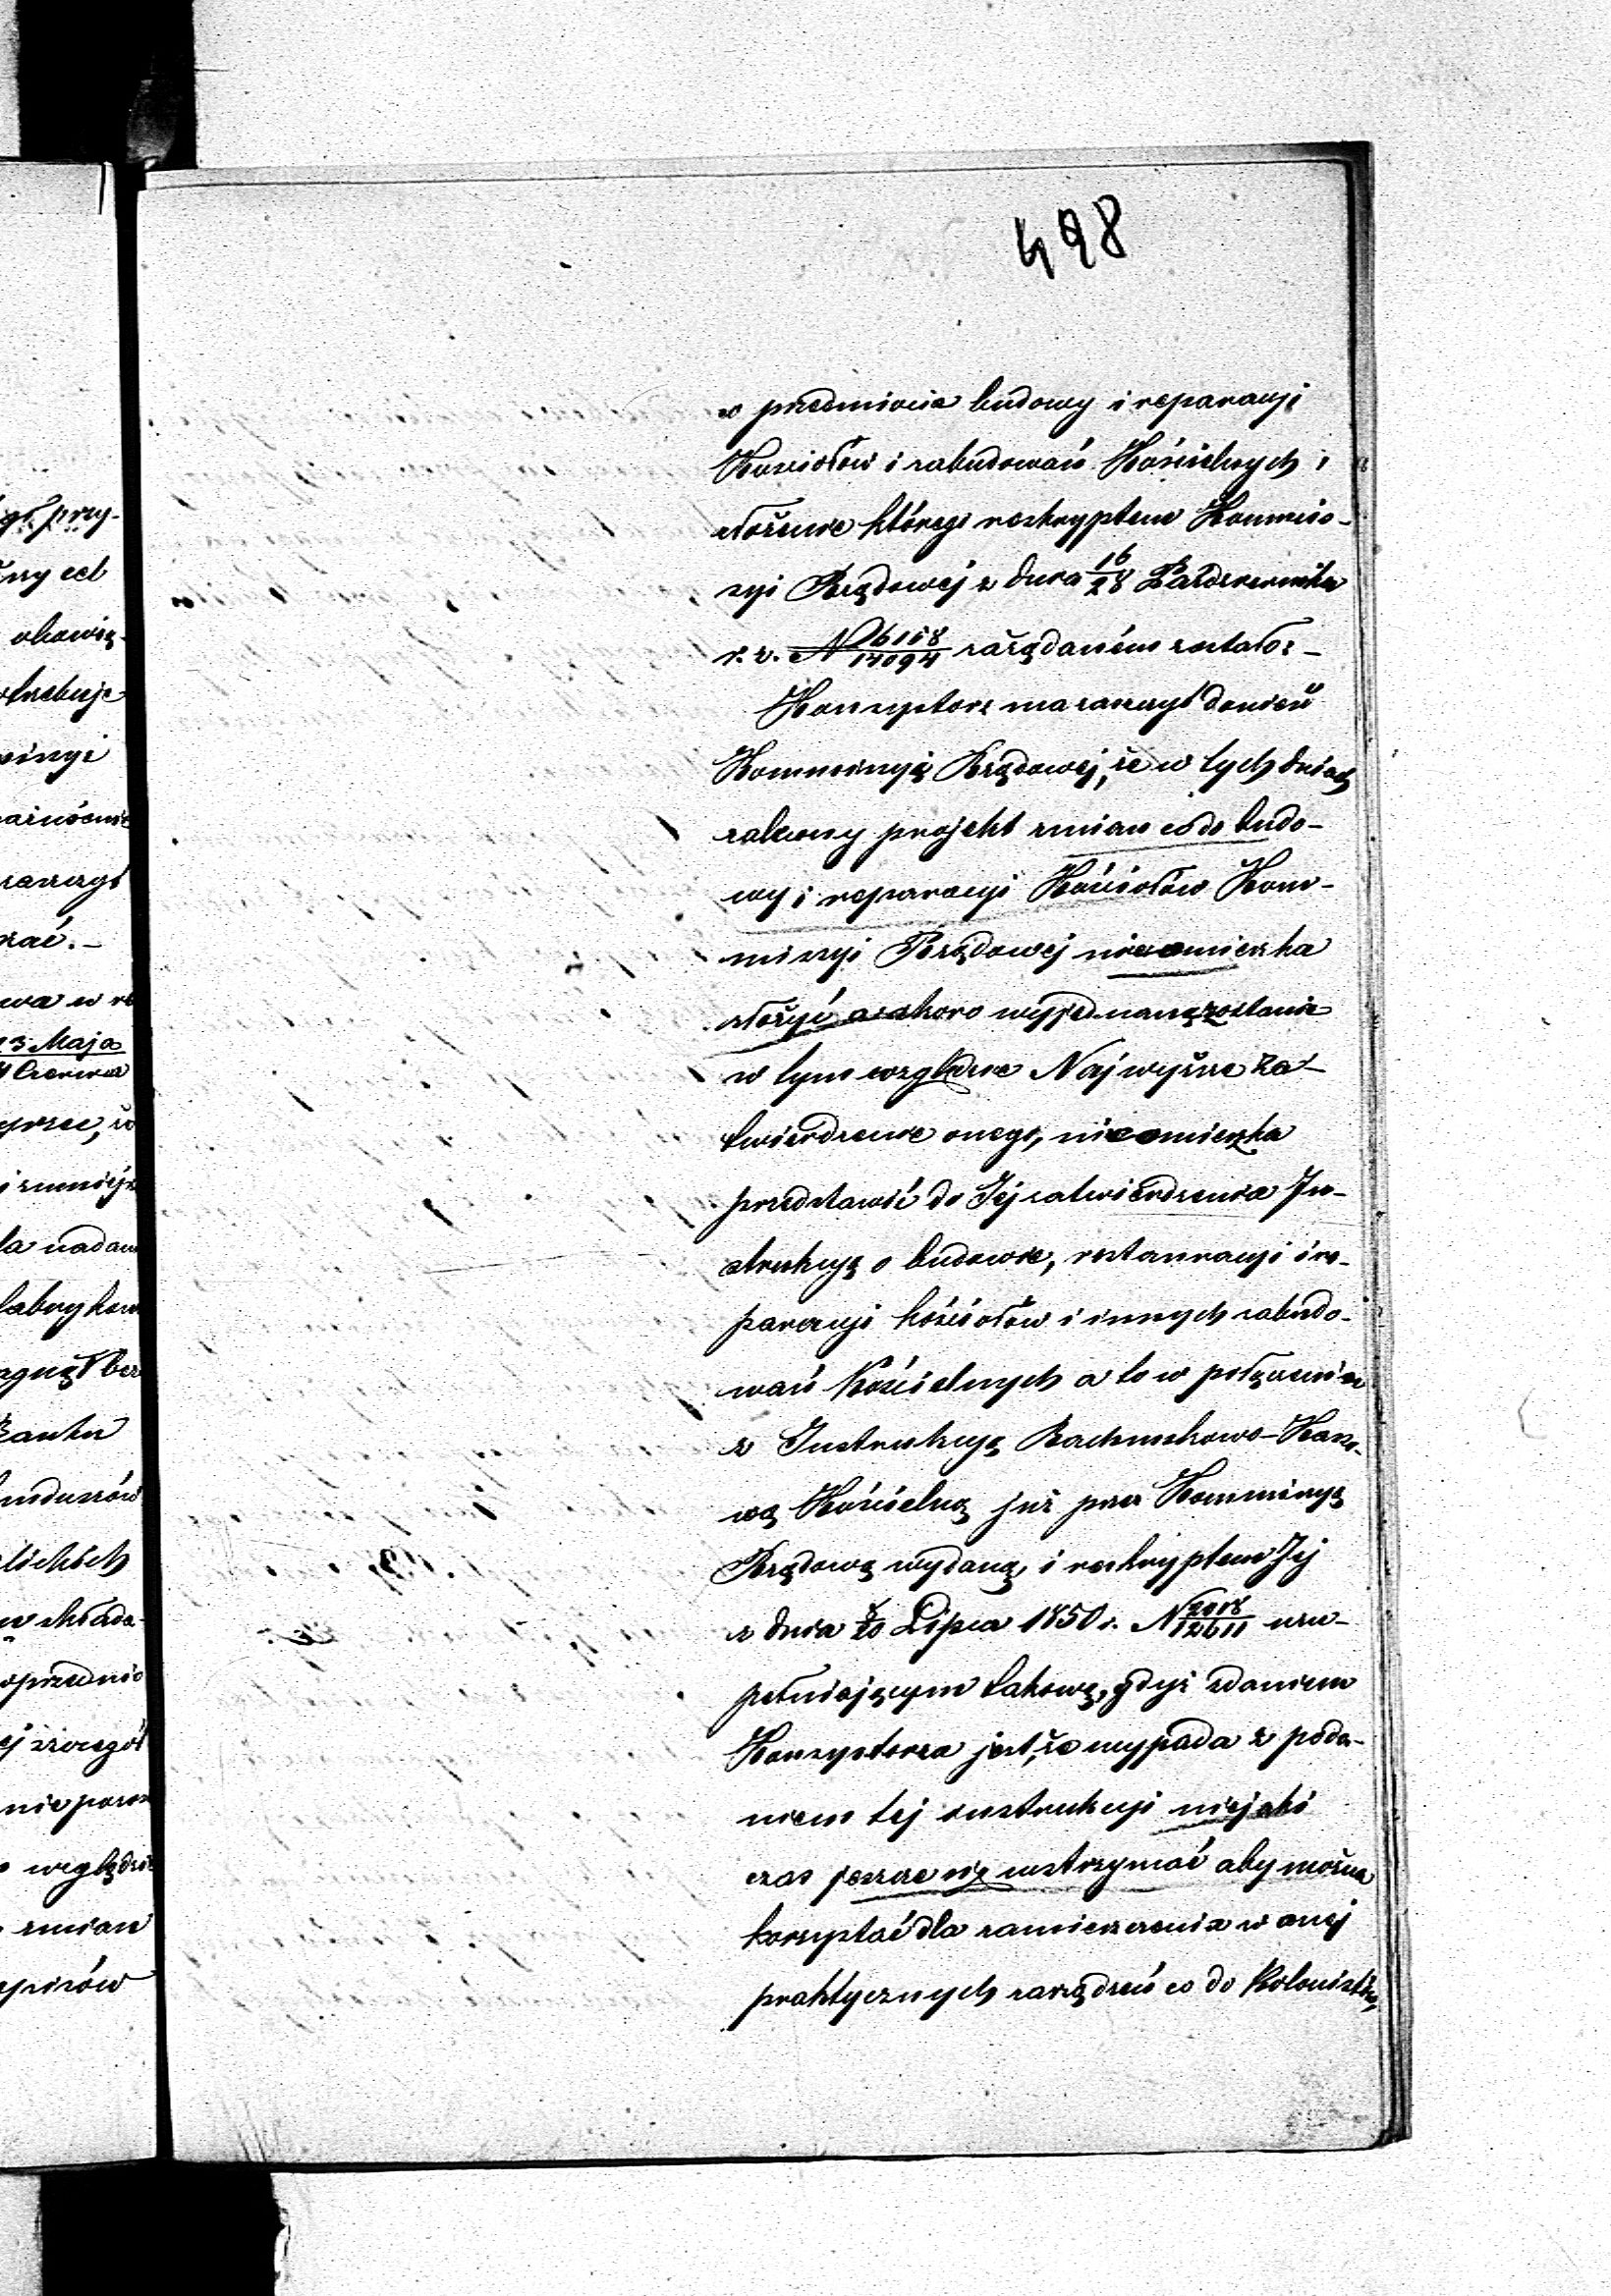 498
w przedmiocie budowy i reparacyi
Kościołów i zabudowań Kościelnych i
złożenie którego reskryptem Kommis-
syi Rządowej z dnia 16/28 Października
r. z. N 6118/14094 zażądaném zostało: –
Konsystorz ma zaszczyt donieść
Kommissyi Rządowej, że w tych dniach
zalecony projekt zmian co do budo-
wy i reparacyi Kościołów Kom-
missyi Rządowej nieomieszka
złożyć a skoro wyjednane zostanie
w tym względzie Najwyższe Za-
twierdzenie onego, nieomieszka
przedstawić do Jej zatwierdzenia In-
strukcyą o budowie, restauracyi i re-
paracyi kościołów i innych zabudo-
wań Kościelnych a to w połączeniu
z Instrukcyą Rachunkowo-Kasso-
wą Kościelną już przez Kommissyą
Rządową wydaną, i reskryptem Jej
z dnia 8/20 Lipca 1850 r. N 2018/12611 uzu-
pełniającym takową, gdyż zdaniem
Konsystorza jest, że wypada z poda-
niem tej instrukcyi niejaki
czas jeszcze się wstrzymać aby można
korzystać dla zamieszczenia w onej
praktycznych zarządzeń co do Kolonistów,
przy-
obowią-
trebuje
zaszczyt
wa w
23 Maja
Czerwca
nadan
bez
funduszów
lickich
składa-
oprzednio
szczegół
nie
względzie
zmian
episów